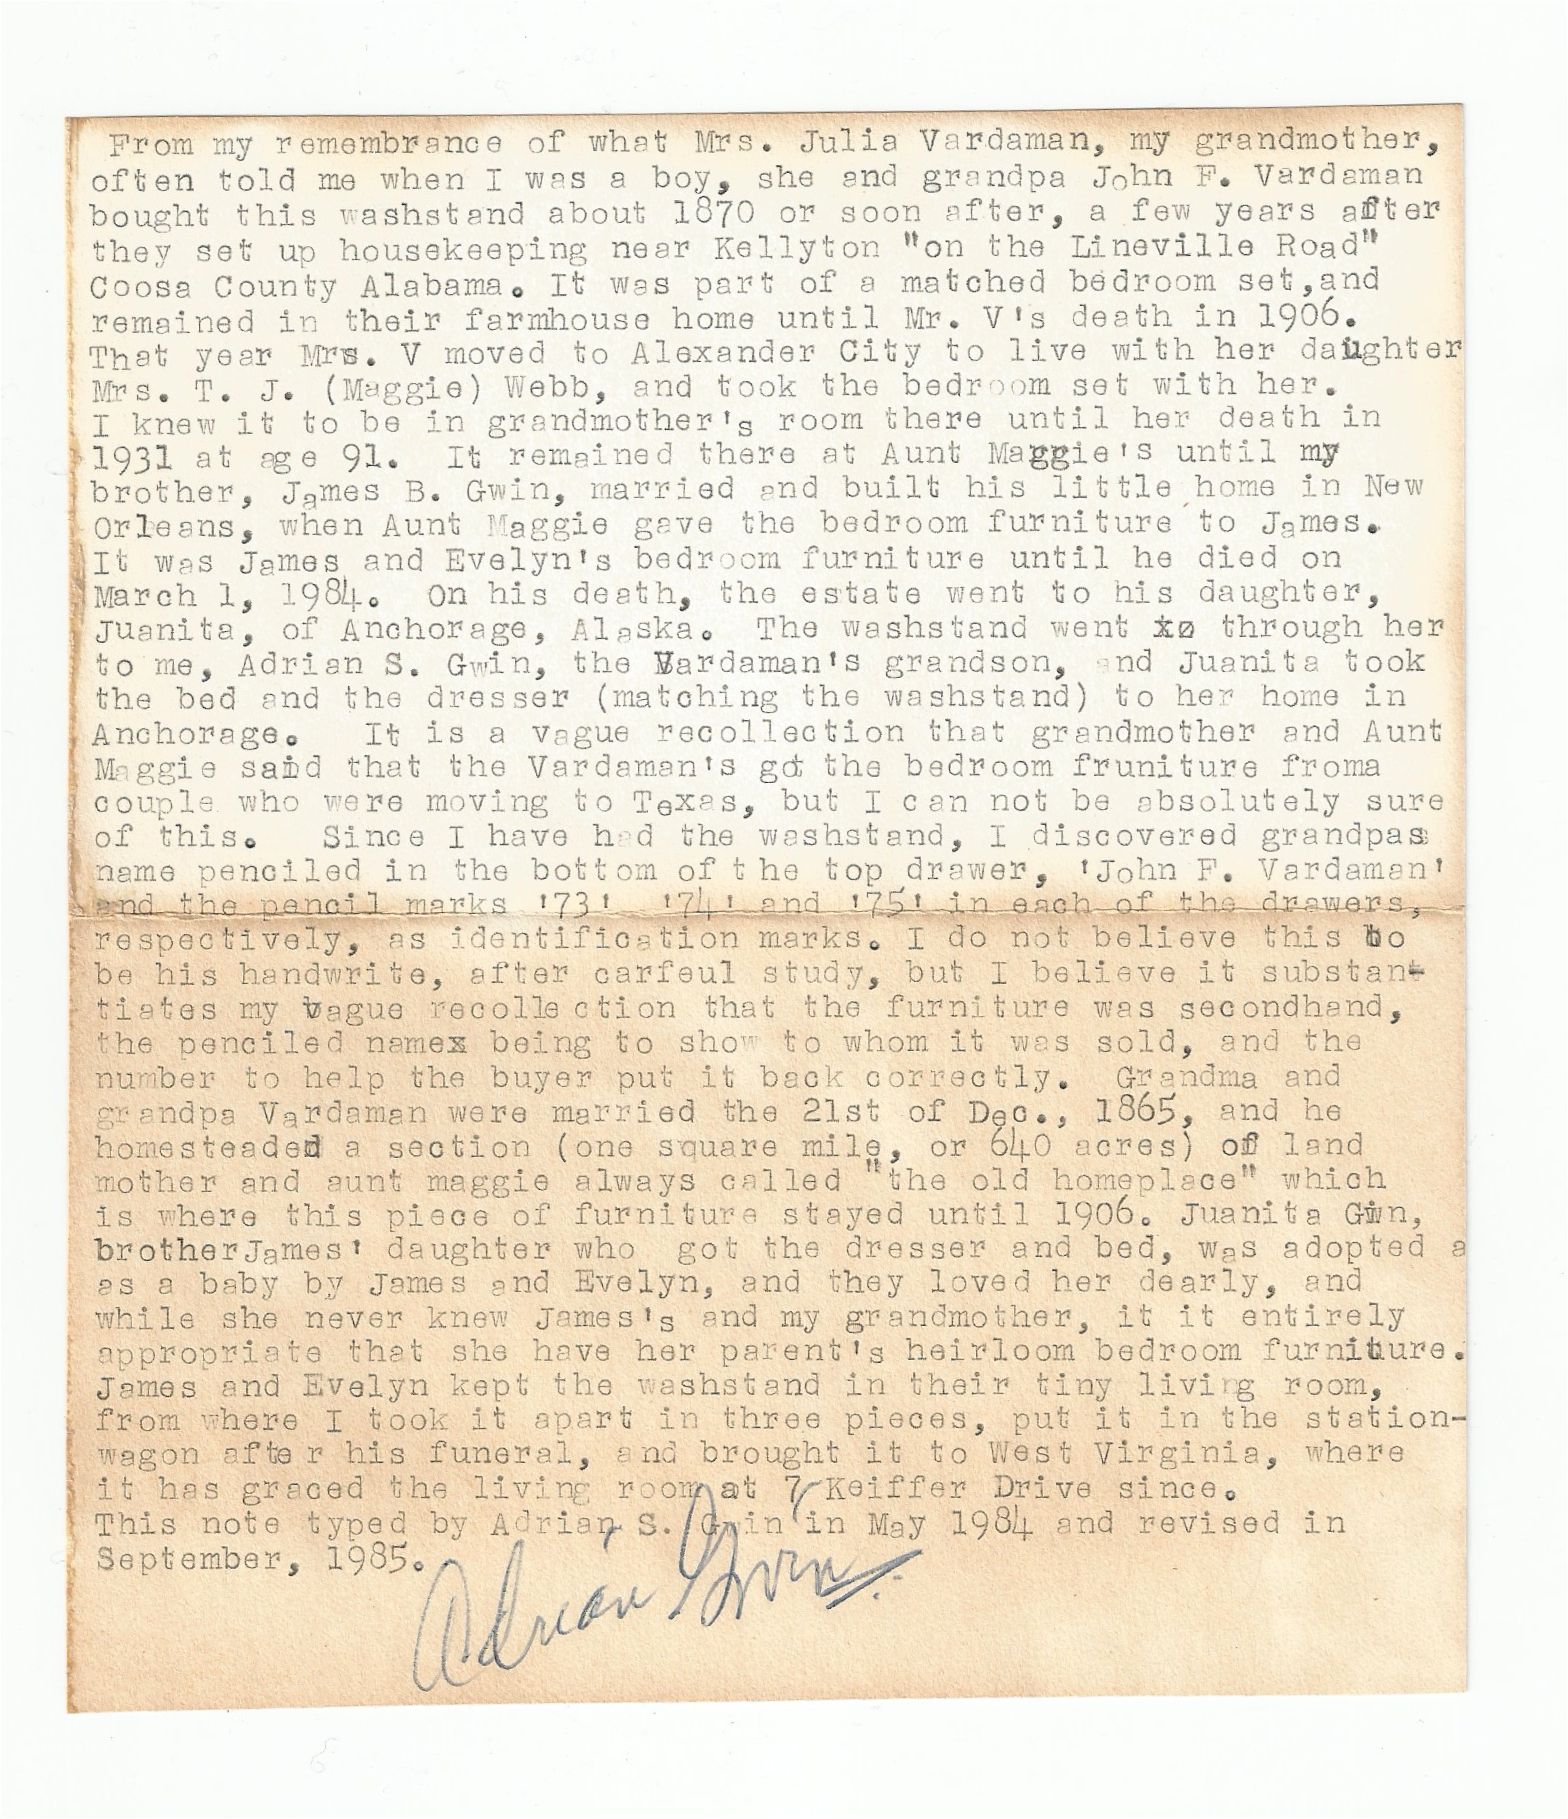 From my remembrance of what Mrs. Julia Vardaman, my grandmother,
often told me when I was a boy, she and grandpa John F. Vardaman
bought this washstand about 1870 or soon after, a few years after
they set up housekeeping near Kellyton "on the Lineville Road"
Coosa County Alabama. It was part of a matched bedroom set,and
remained in their farmhouse home until Mr. V's death in 1906.
That year Mrs. V moved to Alexander City to live with her daughter
Mrs. T. J. (Maggie) Webb, and took the bedroom set with her.
I knew it to be in grandmother's room there until her death in
1931 at age 91. It remained there at Aunt Maggie's until my
brother, James B. Gwin, married and built his little home in New
Orleans, when Aunt Maggie gave the bedroom furniture to James.
It was James and Evelyn's bedroom furniture until he died on
March 1, 1984. On his death, the estate went to his daughter,
Juanita, of Anchorage, Alaska. The washstand went xx through her
to me, Adrian S. Gwin, the Vardaman's grandson, and Juanita took
the bed and the dresser (matching the washstand) to her home in
Anchorage. It is a vague recollection that grandmother and Aunt
Maggie said that the Vardaman's got the bedroom fruniture froma
couple who were moving to Texas, but I can not be absolutely sure
of this. Since I have had the washstand, I discovered grandpas
name penciled in the bottom of the top drawer, 'John F. Vardaman'
and the pencil marks '73' '74' and '75' in each of the drawers,
respectively, as identification marks. I do not believe this to
be his handwrite, after carfeul study, but I believe it substan-
tiates my vague recollection that the furniture was secondhand,
the penciled namex being to show to whom it was sold, and the
number to help the buyer put it back correctly. Grandma and
grandpa Vardaman were married the 21st of Dec., 1865, and he
homesteaded a section (one square mile, or 640 acres) of land
mother and aunt maggie always called "the old homeplace" which
is where this piece of furniture stayed until 1906. Juanita Gwn,
brother James' daughter who got the dresser and bed, was adopted a
as a baby by James and Evelyn, and they loved her dearly, and
while she never knew James's and my grandmother, it it entirely
appropriate that she have her parent's heirloom bedroom furniture.
James and Evelyn kept the washstand in their tiny living room,
from where I took it apart in three pieces, put it in the station-
wagon after his funeral, and brought it to West Virginia, where
it has graced the living room at 7 Keiffer Drive since.
This note typed by Adrian S. Gwin in May 1984 and revised in
September, 1985.
Adrian Gwin